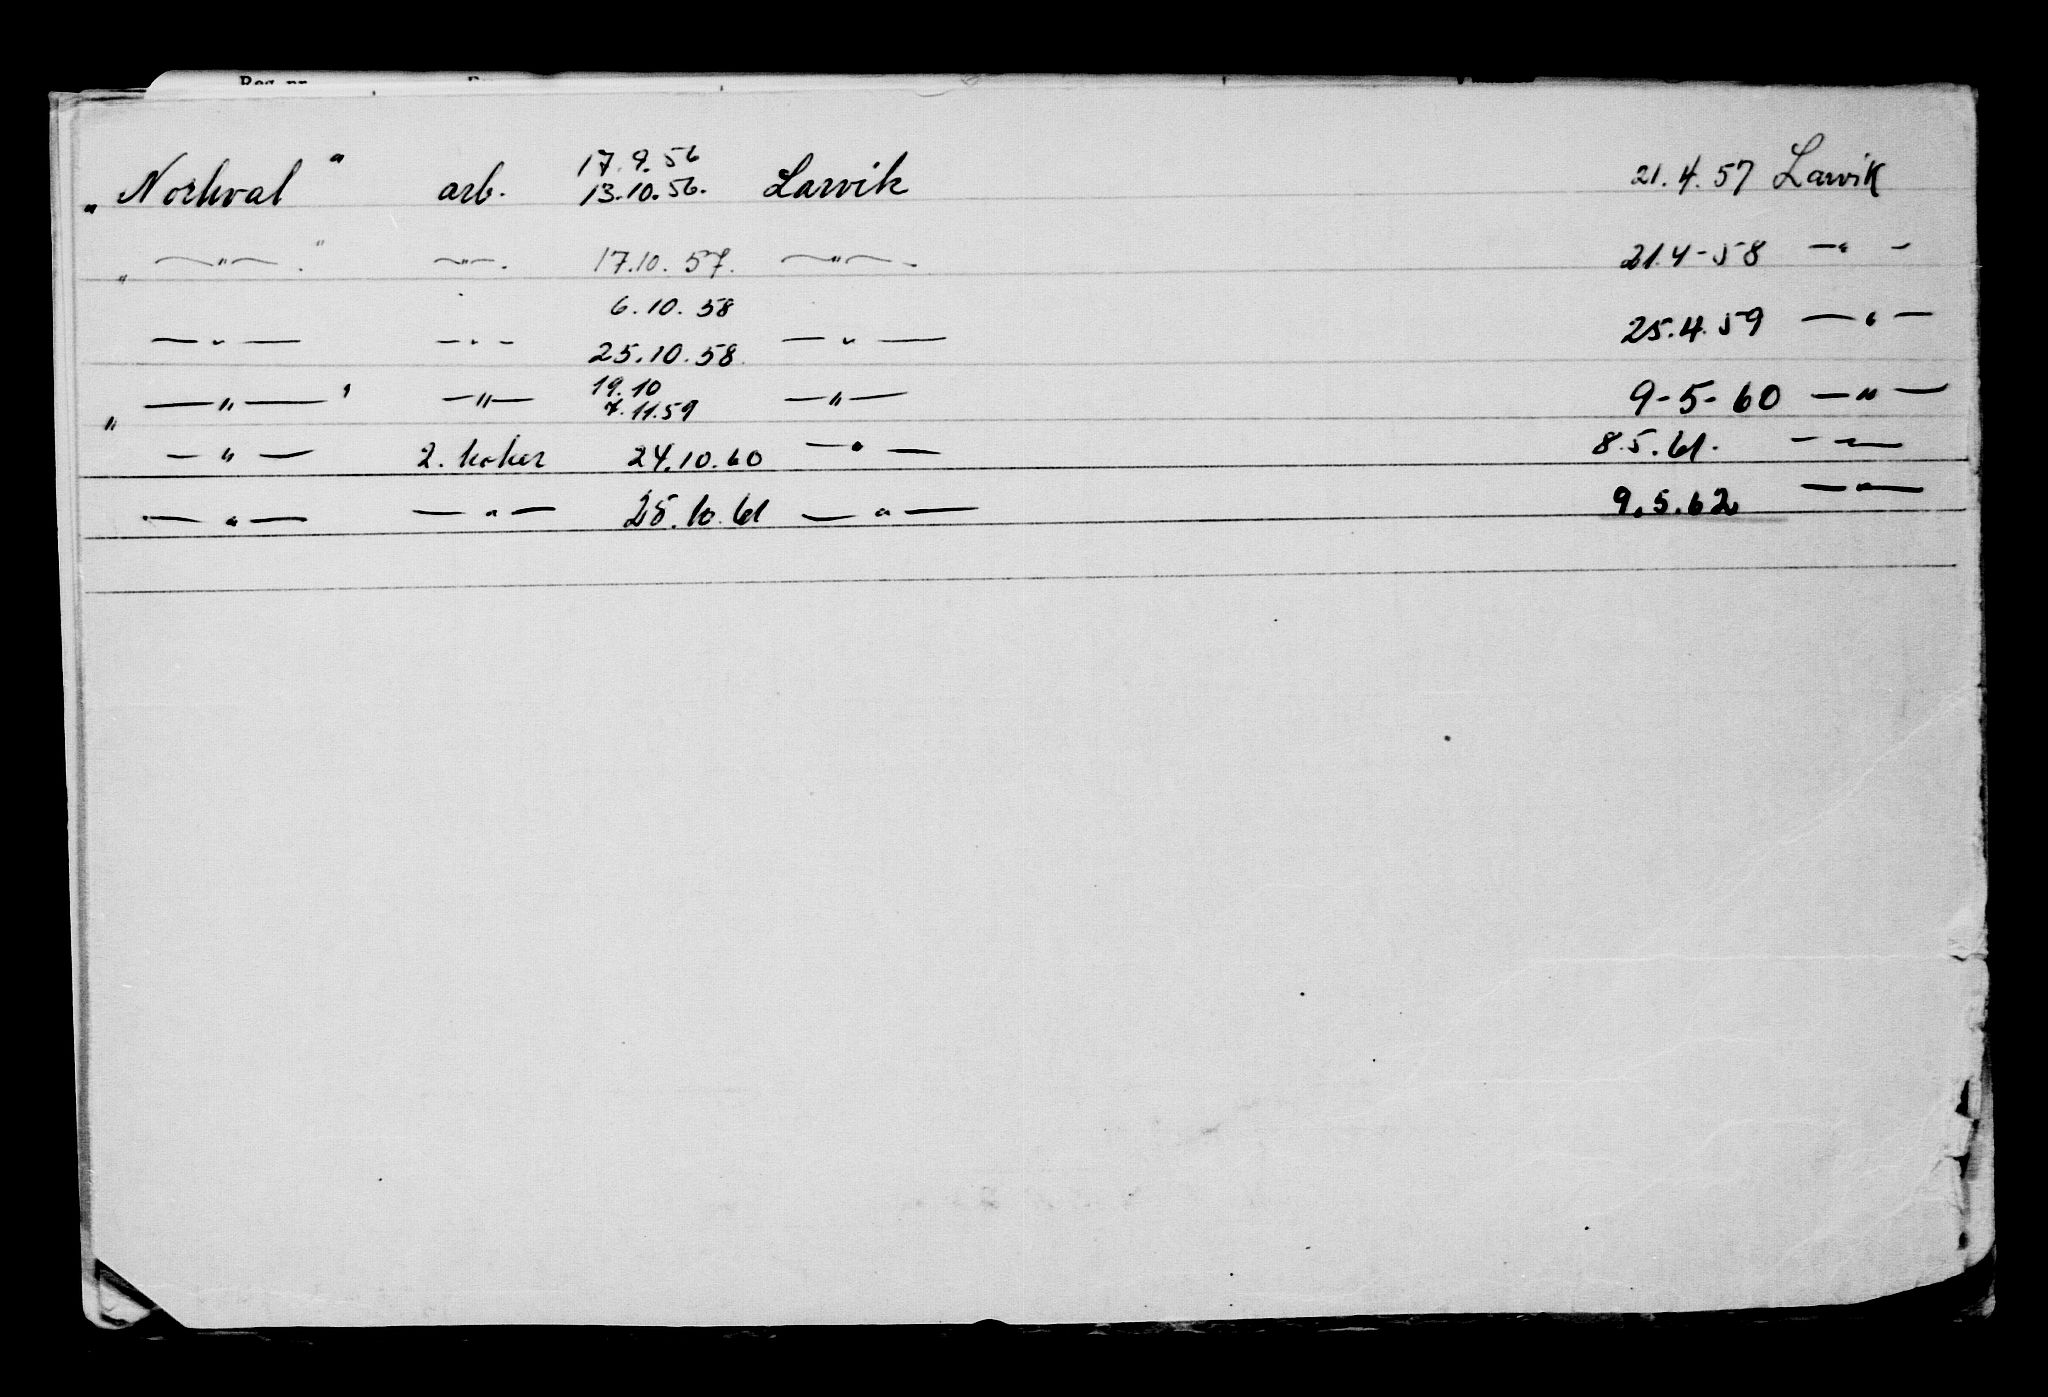 „Norhval" arb. 17.9.56 13.10.56. Larvik 21.4.57 Larvik
„ —"— . " —"—. 17.10.57. —"—. 21.4-58 —"—
—"— —"— 6.10.58 25.10.58 —"— 25.4.59 —"—
„ —"— " —"— 19.10 7.11.59 —"— 9-5-60 —"—
—"— 2. koker 24.10.60 —"— 8.5.61. —"—
—"— —"— 25.10.61 —"— 9.5.62 —"—